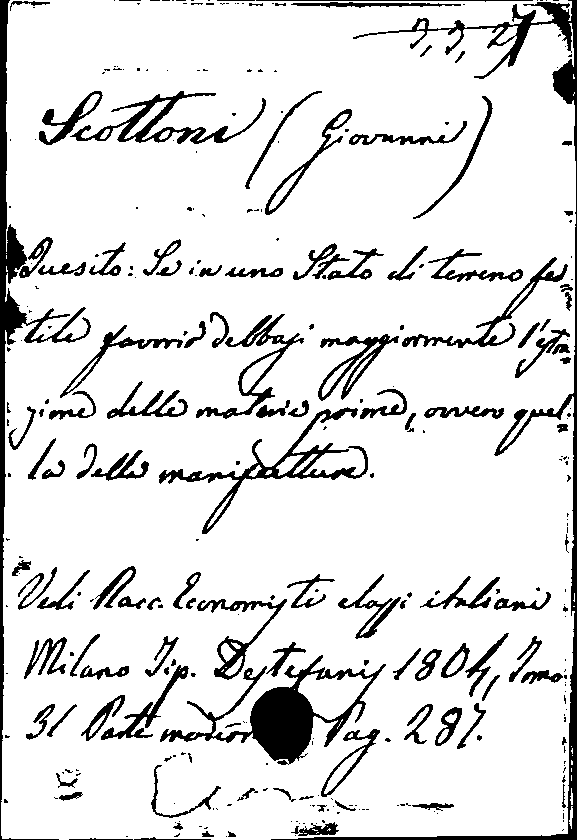 3, 3, 27
Scottoni (Giovanni)
Quesito: Se in uno Stato di terreno fer
tile favorir debbasi maggiormente l'estra
zione delle materie prime, ovvero quel-
la delle manifatture.
Vedi Racc. Economisti classi italiani
Milano Tip. Destefanis 1804, Tomo
31 Parte moder Pag. 287.